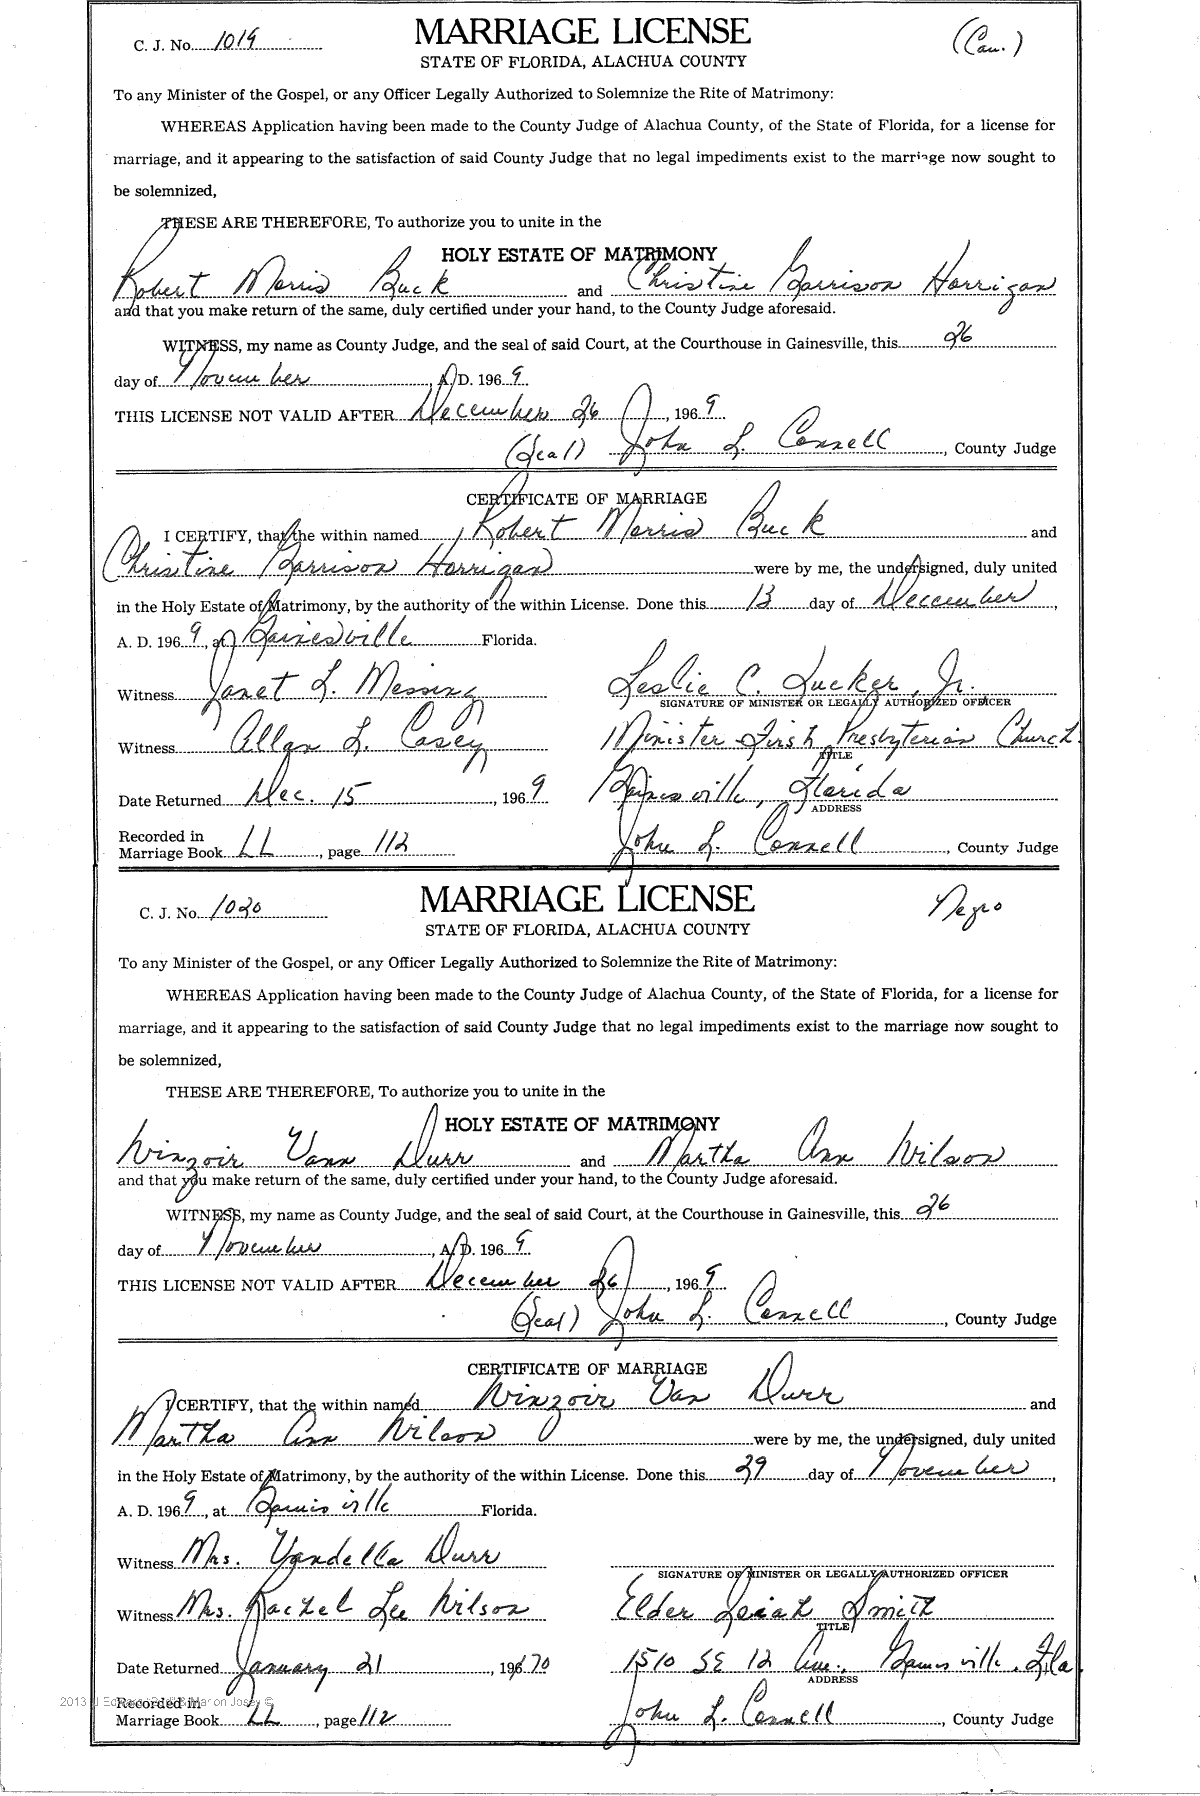 C. J. No. 1019
MARRIAGE LICENSE
(Cau.)
STATE OF FLORIDA, ALACHUA COUNTY
To any Minister of the Gospel, or any Officer Legally Authorized to Solemnize the Rite of Matrimony:
WHEREAS Application having been made to the County Judge of Alachua County, of the State of Florida, for a license for
marriage, and it appearing to the satisfaction of said County Judge that no legal impediments exist to the marriage now sought to
be solemnized,
THESE ARE THEREFORE, To authorize you to unite in the
HOLY ESTATE OF MATRIMONY
Robert Morris Buck and Christine Garrison Horrigan
and that you make return of the same, duly certified under your hand, to the County Judge aforesaid.
WITNESS, my name as County Judge, and the seal of said Court, at the Courthouse in Gainesville, this 26
day of November, A. D. 1969.
THIS LICENSE NOT VALID AFTER December 26, 1969.
(Seal) John L. Connell, County Judge
CERTIFICATE OF MARRIAGE
I CERTIFY, that the within named Robert Morris Buck and
Christine Garrison Horrigan were by me, the undersigned, duly united
in the Holy Estate of Matrimony, by the authority of the within License. Done this 13 day of December,
A. D. 1969, at Gainesville Florida.
Witness Janet L. Messing Leslie C. Tucker, Jr.
SIGNATURE OF MINISTER OR LEGALLY AUTHORIZED OFFICER
Witness Allan L. Casey Minister First Presbyterian Church
TITLE
Date Returned Dec. 15, 1969 Gainesville, Florida
ADDRESS
Recorded in
Marriage Book LL, page 112 John L. Connell, County Judge
C. J. No. 1020
MARRIAGE LICENSE
Negro
STATE OF FLORIDA, ALACHUA COUNTY
To any Minister of the Gospel, or any Officer Legally Authorized to Solemnize the Rite of Matrimony:
WHEREAS Application having been made to the County Judge of Alachua County, of the State of Florida, for a license for
marriage, and it appearing to the satisfaction of said County Judge that no legal impediments exist to the marriage now sought to
be solemnized,
THESE ARE THEREFORE, To authorize you to unite in the
HOLY ESTATE OF MATRIMONY
Winzoir Vann Durr and Martha Ann Wilson
and that you make return of the same, duly certified under your hand, to the County Judge aforesaid.
WITNESS, my name as County Judge, and the seal of said Court, at the Courthouse in Gainesville, this 26
day of November, A. D. 1969.
THIS LICENSE NOT VALID AFTER December 26, 1969.
(Seal) John L. Connell, County Judge
CERTIFICATE OF MARRIAGE
I CERTIFY, that the within named Winzoir Van Durr and
Martha Ann Wilson were by me, the undersigned, duly united
in the Holy Estate of Matrimony, by the authority of the within License. Done this 29 day of November,
A. D. 1969, at Gainesville Florida.
Witness Mrs. Vandella Durr
SIGNATURE OF MINISTER OR LEGALLY AUTHORIZED OFFICER
Witness Mrs. Rachel Lee Wilson Elder Smith
TITLE
Date Returned January 21, 1970 1510 SE 12 Ave., Gainesville, Fla.
ADDRESS
Recorded in
Marriage Book LL, page 112 John L. Connell, County Judge
2013